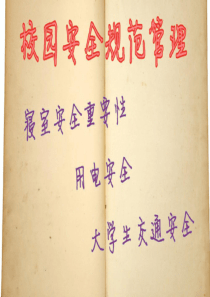 校园安全规范管理
寝室安全重要性
用电安全
大学生交通安全